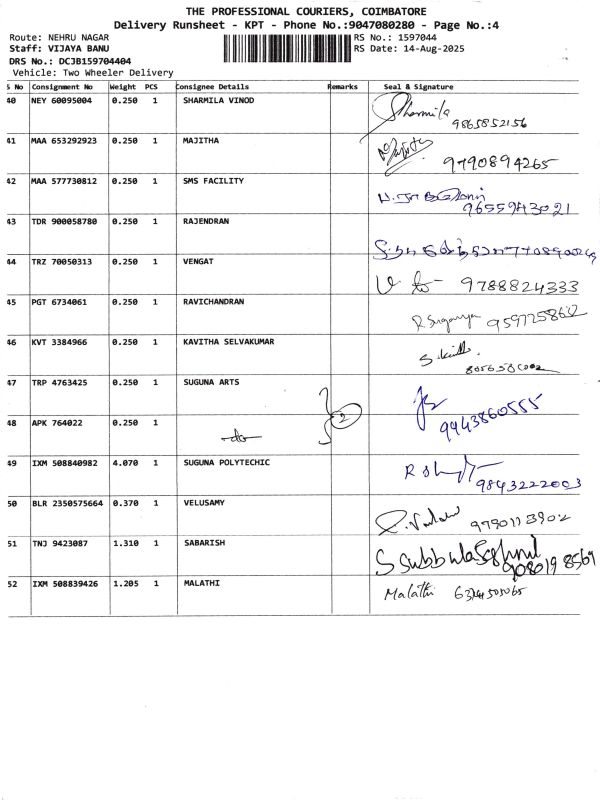 THE PROFESSIONAL COURIERS, COIMBATORE
Delivery Runsheet - KPT - Phone No.:9047080280 - Page No.:4
Route: NEHRU NAGAR RS No.: 1597044
Staff: VIJAYA BANU RS Date: 14-Aug-2025
DRS No.: DCJB159704404
Vehicle: Two Wheeler Delivery
S No Consignment No Weight PCS Consignee Details Remarks Seal & Signature
40 NEY 60095004 0.250 1 SHARMILA VINOD Sharmila
9865852156
41 MAA 653292923 0.250 1 MAJITHA
9790894265
42 MAA 577730812 0.250 1 SMS FACILITY
9655943021
43 TDR 900058780 0.250 1 RAJENDRAN
44 TRZ 70050313 0.250 1 VENGAT
9788824333
45 PGT 6734061 0.250 1 RAVICHANDRAN
R Suganya
46 KVT 3384966 0.250 1 KAVITHA SELVAKUMAR
47 TRP 4763425 0.250 1 SUGUNA ARTS
2
9443860555
48 APK 764022 0.250 1 -do-
49 IXM 508840982 4.070 1 SUGUNA POLYTECHIC
9843222003
50 BLR 2350575664 0.370 1 VELUSAMY
9790113902
51 TNJ 9423087 1.310 1 SABARISH
908019 8569
52 IXM 508839426 1.205 1 MALATHI Malathi